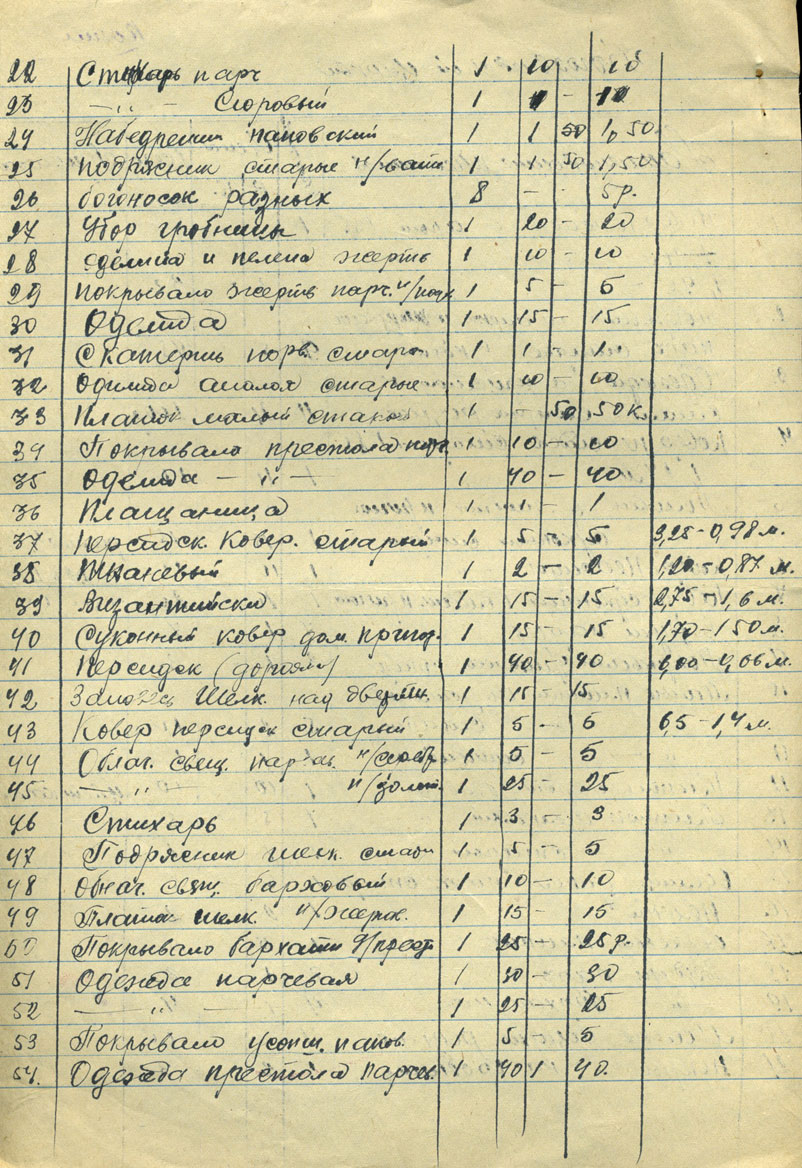 22 Стихарь парч 1 10 10
23 —„— 1 —
24 Набедренник 1 1 50 1,50.
25 подрясник старые н/вати 1 1 50 1,50
26 богоносок разных 8 — — 5р.
27 Убор гробницы 1 20 — 20
28 и пелена жертв 1 10 — 10
29 Покрывало жертв парч. 1 5 — 5
30 Одежда 1 15 — 15
31 Скатерть стара 1 1 — 1
32 Одежда аналоя старые 1 10 — 10
33 Платок малый 1 50 , 50к.
34 Покрывало престола 1 10 — 10
35 Одежда —„— 1 40 — 40
36 Плащаница 1 1 — 1
37 Персидск. Ковер. старый 1 5 — 5 3,25 – 0,98 м.
38 1 2 — 2 1,20 – 0,87 м.
39 Византийски 1 15 — 15 2,75 – 1,6 м.
40 Суконный ковер дом. 1 15 — 15 1,70 – 1 50 м.
41 Персидск (дорожка) 1 40 — 40
42 шелк. над 1 15 15
43 Ковер персидск старый 1 5 - 5 6,5 – 1,4 м.
44 Облач. свящ. парчев. 1 5 — 5
45 —„— н/золот. 1 25 — 25
46 Стихарь 1 3 - 3
47 Подрясник шелк. стары 1 5 - 5
48 Облач. свящ. барховый 1 10 — 10
49 шелк. 1 15 — 15
50 Покрывало бархатн 1 25 — 25р.
51 Одежда парчевая 1 30 — 30
52 —„— 1 25 — 25
53 Покрывало усопш. 1 5 — 5
54. Одежда престола парчев. 1 40 1 40.